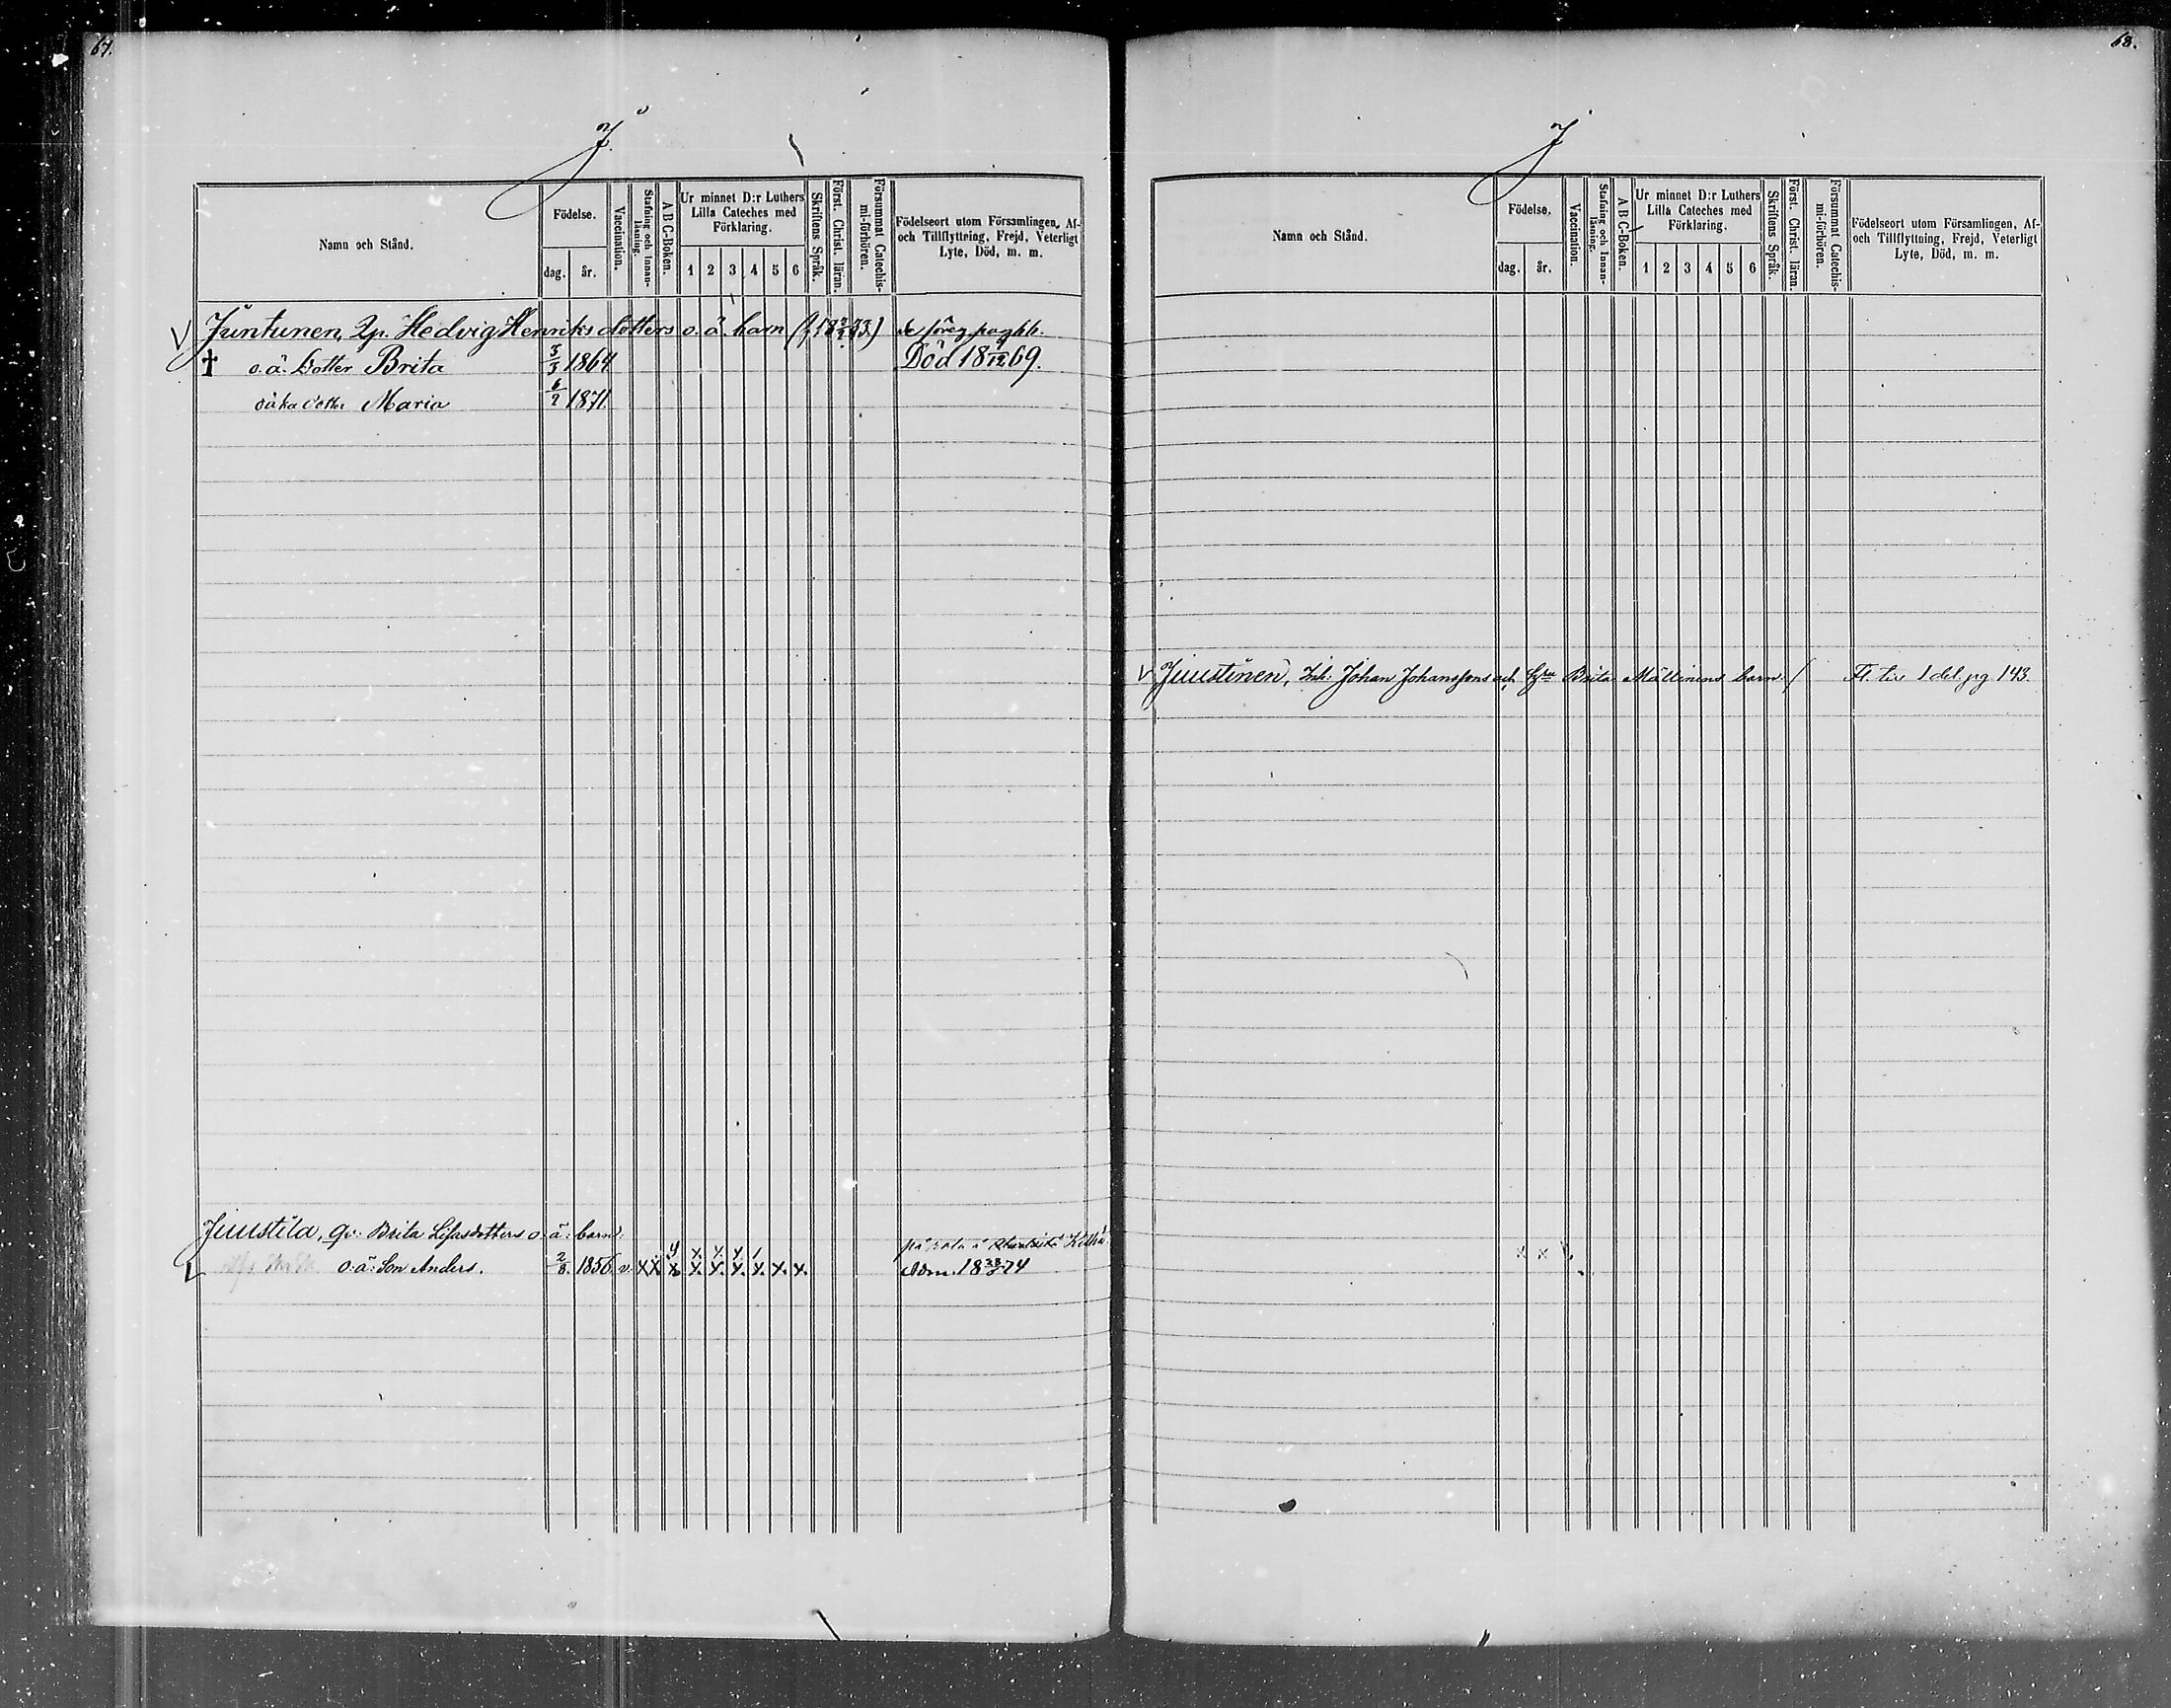 67.
J.
Namn och Stånd.
Födelse.
dag.
år.
Vaccination.
Stafning och Innan-läsning.
A B C-Boken.
Ur minnet D:r Luthers
Lilla Cateches med
Förklaring.
1 2 3 4 5 6
Skriftens Språk.
Först. Christ. läran.
Försummat Catechis-mi-förhören.
Födelseort utom Församlingen, Af-
och Tillflyttning, Frejd, Veterligt
Lyte, Död, m. m.
V Juntunen, Hedvig Henriksdotters o. ä. barn
† o. ä. Dotter Brita 3/3 1864 Död 18 9/12 69.
Dotter Maria 6/2 1871.
Juustila, Brita Lisasdotters o. ä. barn.
4 x. x. x. 1
o: ä: Son Anders. 2/8. 1856. v. x x x. x. x. x. x. x.
68.
J
Namn och Stånd.
Födelse.
dag.
år.
Vaccination.
Stafning och Innan-läsning.
A B C-Boken.
Ur minnet D:r Luthers
Lilla Cateches med
Förklaring.
1 2 3 4 5 6
Skriftens Språk.
Först. Christ. läran.
Försummat Catechis-mi-förhören.
Födelseort utom Församlingen, Af-
och Tillflyttning, Frejd, Veterligt
Lyte, Död, m. m.
V Juustinen, Inh: Johan Johanssons och Brita Mällinens barn. 1 del. pg 143.